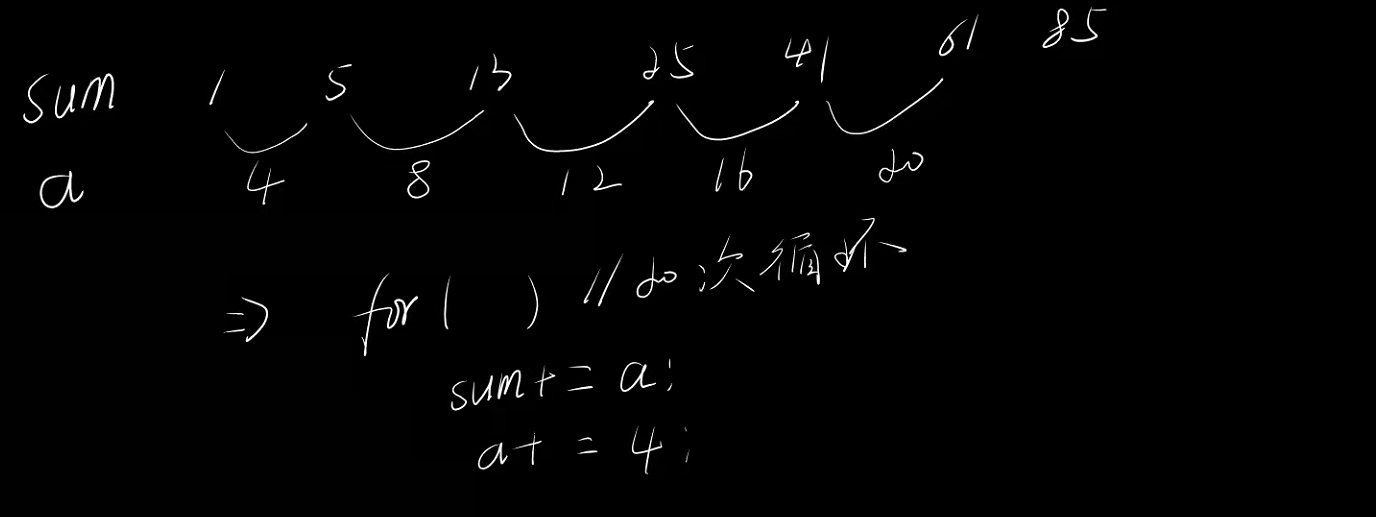 sum 1 5 13 25 41 61 85
a 4 8 12 16 20
⇒ for( ) //20次循环
sum+=a;
a+=4;